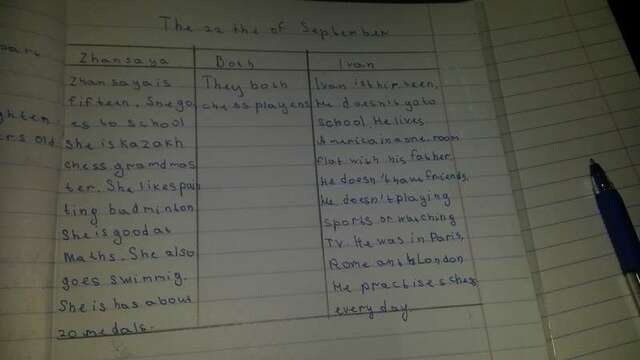 The 22 the of September
Zhansaya
Both
Ivan
Zhansaya is
fifteen. She go
es to school
She is kazakh
chess grandmas
ter. She likes pain
ting badminton
She is good at
Maths. She also
goes swimmig.
She is has about
20 medals.
They both
chess players
Ivan is thirteen,
He doesn't go to
school. He lives
America in a one room
flat with his father
he doesn't have friends.
He doesn't playing
sports or watching
T.V. He was in Paris,
Rome and London
He practises chess
every day